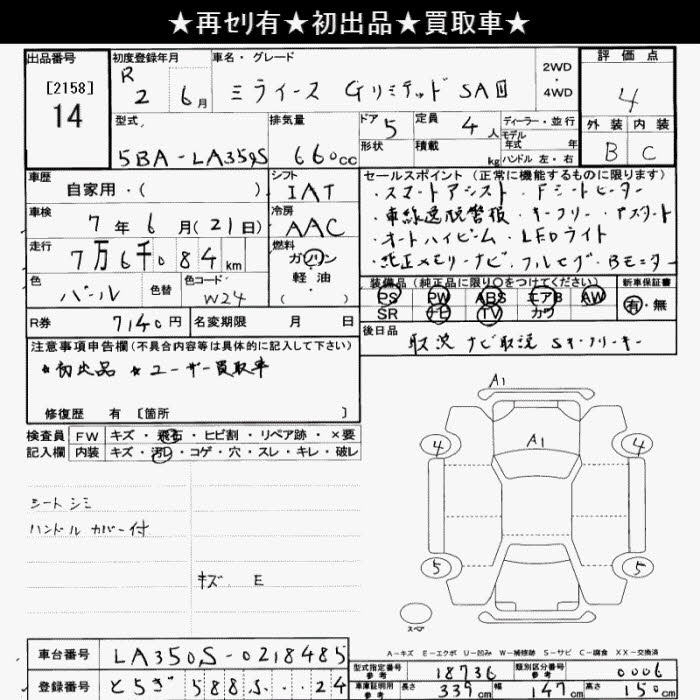 ★再ｾﾘ有★初出品★買取車★
出品番号
[2158]
14
初度登録年月
R 2 6月
車名・グレード
ミライース GリミテッドSAⅢ
2WD
・
4WD
評価点
4
外装 内装
B C
型式
5BA-LA350S
排気量
660cc
ドア 5
形状
定員 4人
積載 kg
ディーラー・並行
モデル年式 年
ハンドル 左・右
車歴
自家用・( )
シフト
IAT
車検
7年6月(21日)
冷房
AAC
走行
7万6千084km
燃料
ガソリン
・
軽油
( )
色
パール
色替
色コード
W24
R券
7140円
名変期限 月 日
セールスポイント (正常に機能するものに限ります)
・スマートアシスト・Fシートヒーター
・車線逸脱警報・キーフリー・Pスタート
・オートハイビーム・LEDライト
・純正メモリーナビ・フルセグ・Bモニター
装備品(純正品に限り○をつけてください)
PS PW ABS エアB AW
SR ナビ TV カワ
新車保証書
有・無
後日品
取説 ナビ取説 Sキーフリーキー
注意事項申告欄(不具合内容等は具体的に記入して下さい)
★初出品 ★ユーザー買取車
修復歴 有 [箇所 ]
検査員記入欄
FW キズ・飛石・ヒビ割・リペア跡・×要
内装 キズ・汚レ・コゲ・穴・スレ・キレ・破レ
シートシミ
ハンドルカバー付
キズ E
A1
A1
4 4
5 5
スペア
A-キズ E-エクボ U-凹み W-補修跡 S-サビ C-腐食 XX-交換済
車台番号 LA350S-0218485
登録番号 とちぎ 588 す ・・24
型式指定番号 参考 18736
類別区分番号 参考 0006
車庫証明用 参考 長さ 339cm 幅 147cm 高さ 150cm